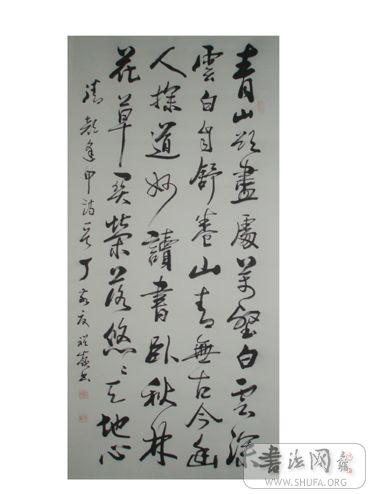 青山欲盡處萬壑白雲深
雲白自舒卷山青無古今幽
人探道妙讀書卧秋林
花草關榮落悠悠天地心
清彭逢甲詩一首丁亥夏
書法网
WWW.SHUFA.ORG